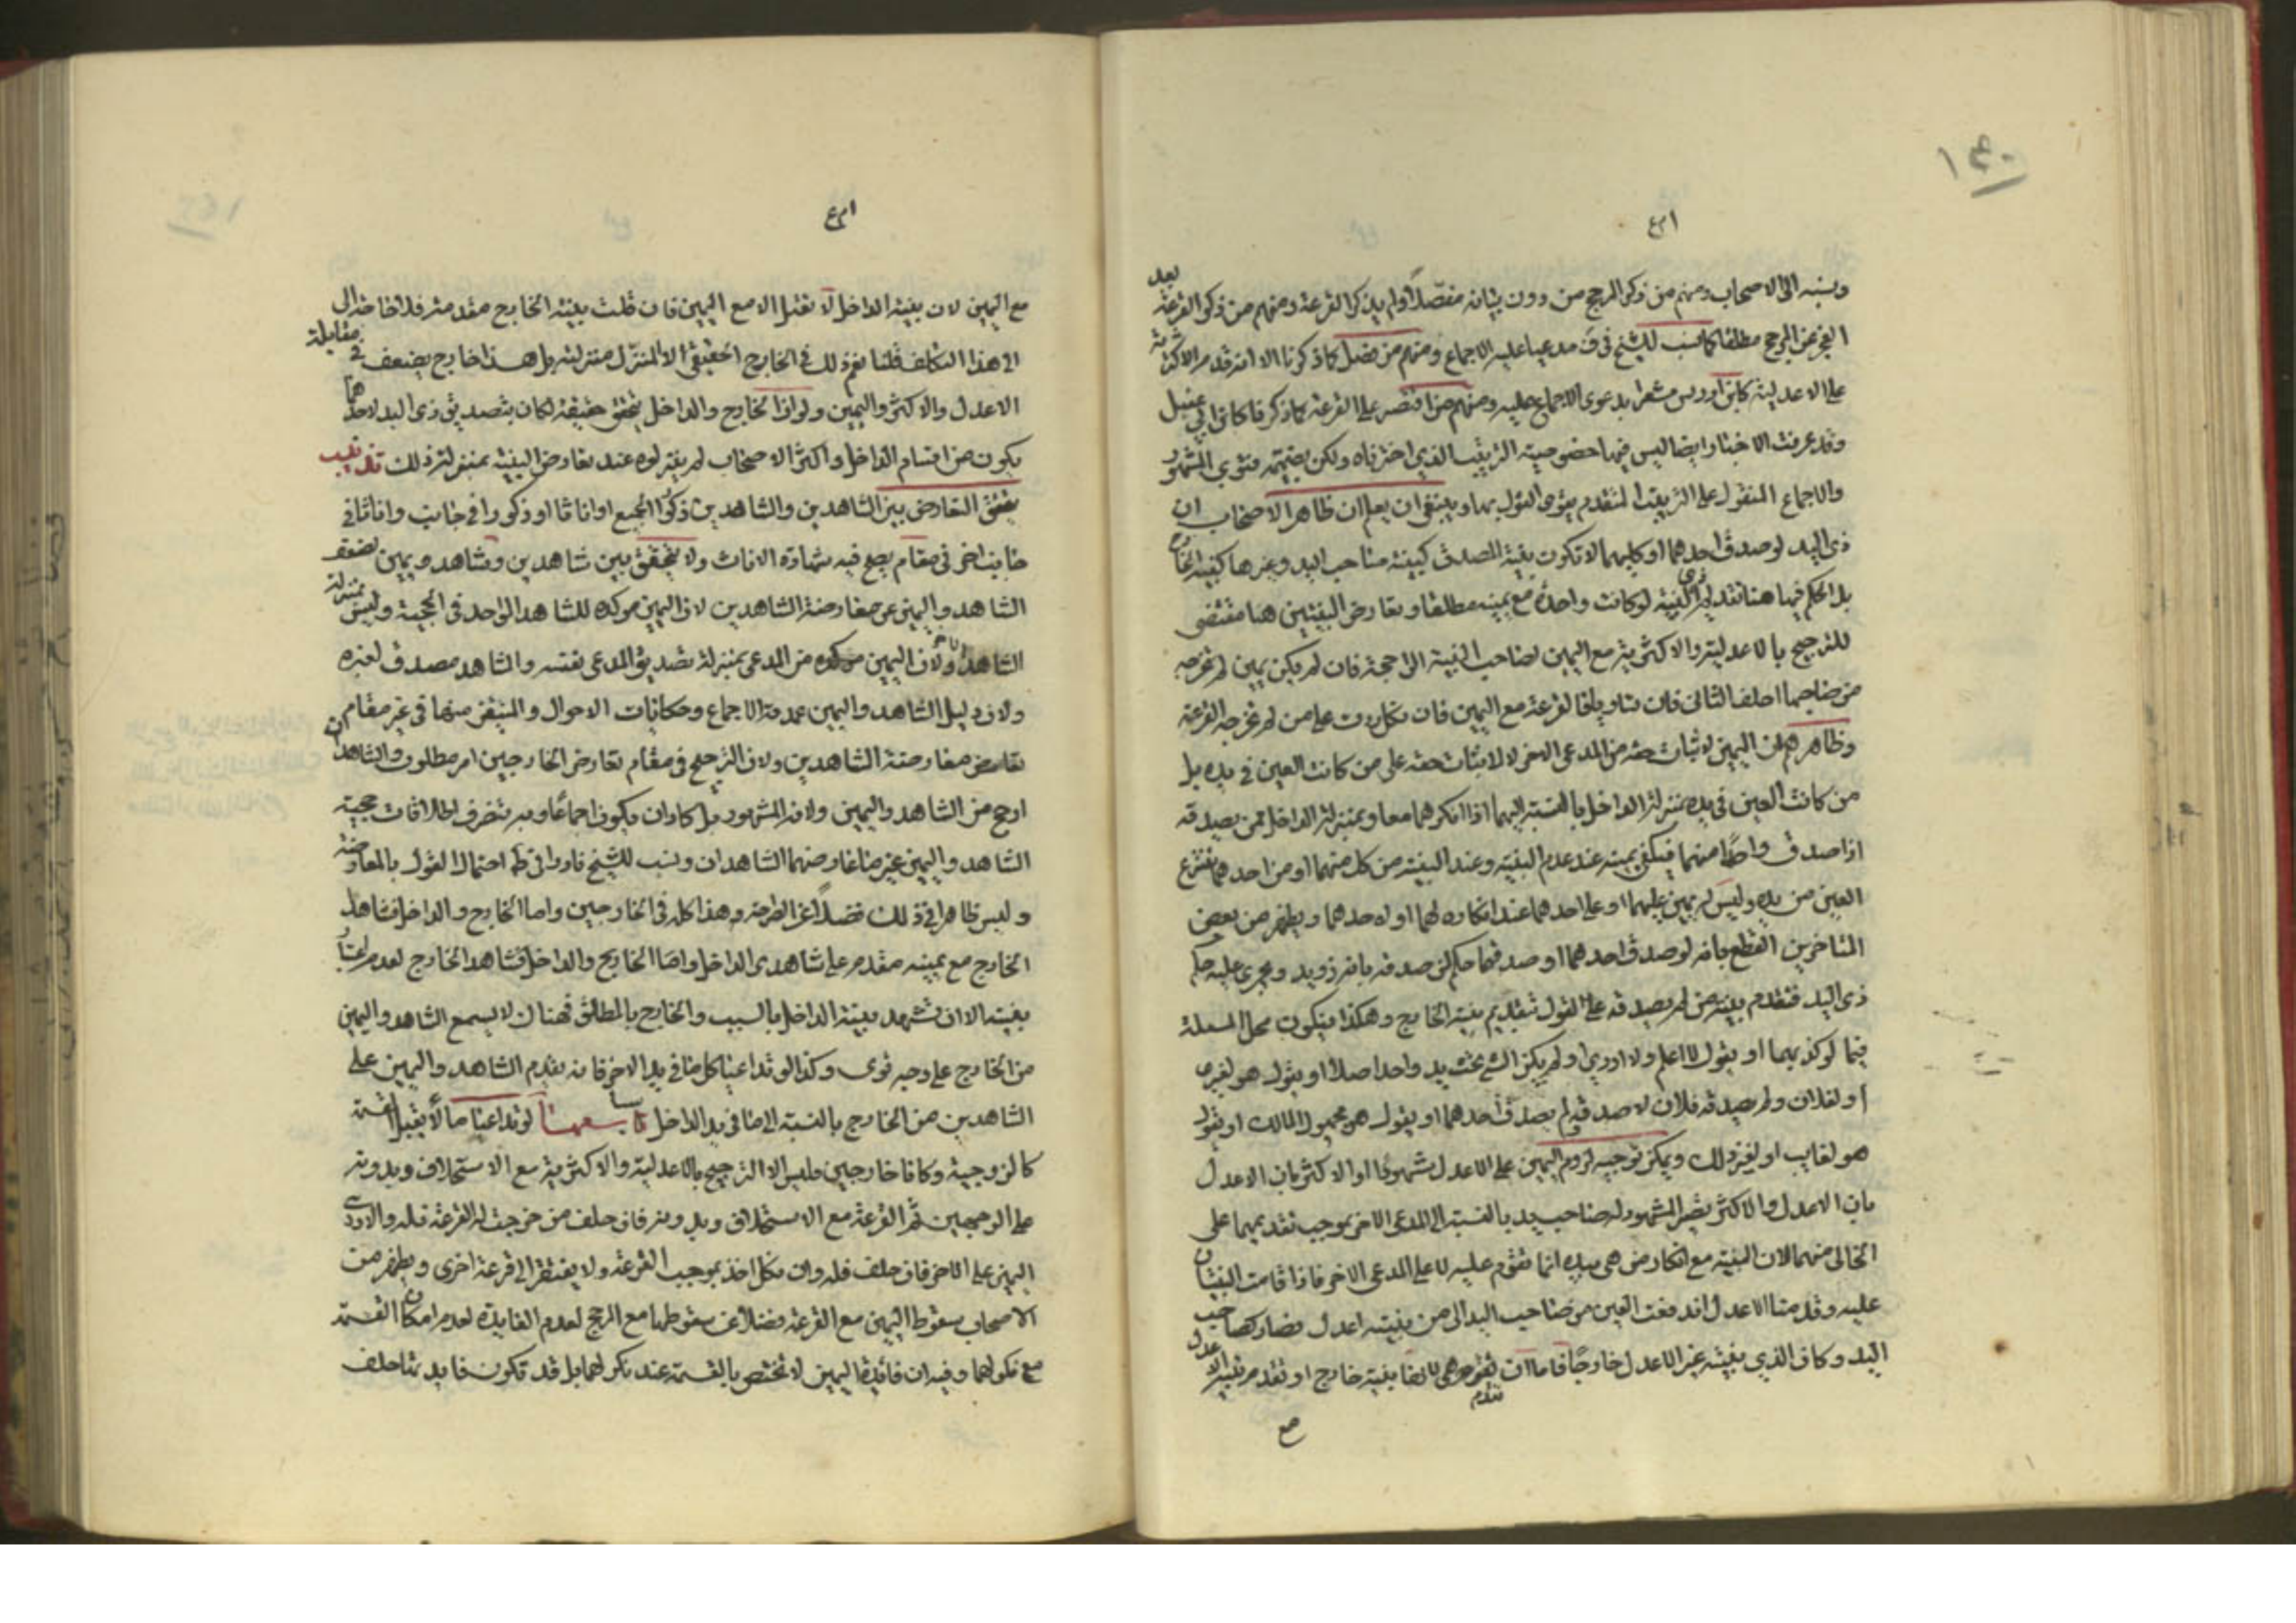 ١٤٠
ونسبه الى الاصحاب ومنهم من ذكر المرجح من دون بيانه مفصلاً ولم يذكر القرعة ومنهم من ذكر القرعة بعد
العجز عن المرجح مطلقا كما نسب للشيخ في مدعيا عليه الاجماع ومنهم من فصل كما ذكرنا الا انه قدم الاكثرية
على الاعدلية كابن ادريس مشعرا بدعوى الاجماع عليه ومنهم من اقتصر على القرعة كما ذكرنا كابن ابي عقيل
وقد عرفت الاخبار وايضا ليس فيها خصوصية الترتيب الذي اخترناه ولكن بضميمة فتوى المشهور
والاجماع المنقول على الترتيب المتقدم يقوى القول بها وينبغي ان يعلم ان ظاهر الاصحاب ان
ذي اليد لو صدق احدهما او كليهما لا تكون بينة المصدق كبينة صاحب اليد وغيرها كبينة
بل الحكم فيها هنا تقديم ذي البينة لو كانت واحدة مع يمينه مطلقا وتعارض البينتين هنا مقتضى
للترجيح بالاعدلية والاكثرية مع اليمين لصاحب البينة الراجحة فان لم يكن يمين
من صاحبها احلف الثاني فان تساويا فالقرعة مع اليمين فان نكل ردت على من لم تخرجه القرعة
وظاهرهم ان اليمين لاثبات حقه من المدعي الاخر لا لاثبات حقه على من كانت العين في يده بل
من كانت العين في يده بمنزلة الداخل بالنسبة اليهما اذا انكرهما معا وبمنزلة الداخل لمن يصدقه
اذا صدق واحدا منهما فيكفي يمينه عند عدم البينة وعند البينة من كل منهما او من احدهما تنتزع
العين من يده وليس له يمين عليهما او على احدهما عند انكاره لهما او لاحدهما ويظهر من بعض
المتاخرين القطع بانه لو صدق احدهما او صدقهما حكم لمن صدقه بانه ذو يد ويجري عليه حكم
ذي اليد فتقدم بينة من لم يصدقه على القول بتقديم بينة الخارج وهكذا فيكون محل المسئلة
فيما لو كذبهما او يقول لا اعلم ولا ادري او لم يكن الشئ تحت يد واحد اصلا او يقول هو لغيري
او لفلان ولم يصدقه فلان لا صدقه ولم يصدق احدهما او يقول هو مجهول المالك او يقول
هو لغايب او لغير ذلك ويمكن توجيه لزوم اليمين على الاعدل شهودا او الاكثر بان الاعدل
بان الاعدل والاكثر يصير المشهود له صاحب يد بالنسبة الى المدعي الاخر بموجب تقديمهما على
الخالي منهما لان البينة مع انكار من هي بيده انما تقوم عليه لا على المدعي الاخر فاذا قامت البينتان
عليه وقدمنا الاعدل اندفعت العين من صاحب اليد الى من بينته اعدل فصار كصاحب
اليد وكان الذي بينته غير الاعدل خارجا فاما ان تقدم هي لانها بينة خارج او تقدم بينة الاعدل
مع اليمين لان بينة الداخل لا تقبل الا مع اليمين فان قلت بينة الخارج مقدمة فلا حاجة الى
الى هذا التكلف قلنا نعم ذلك في الخارج الحقيقي لا المنزل منزلته بل هذا خارج يضعف في مقابلة
الاعدل والاكثر واليمين ولو ان الخارج والداخل يتحقق حقيقة لكان بتصديق ذي اليد لاحدهما
يكون من اقسام الداخل واكثر الاصحاب لم ينزلوه عند تعارض البينة بمنزلة ذلك تذنيب
يتحقق التعارض بين الشاهدين والشاهدين ذكورا الجميع او اناثا او ذكورا في جانب واناثا في
جانب اخر في مقام يصح فيه شهادة الاناث ولا يتحقق بين شاهدين وشاهد ويمين لضعف
الشاهد واليمين عن معارضة الشاهدين لان اليمين موكدة للشاهد الواحد في الحجية وليس بمنزلة
الشاهد ولان اليمين موكده من المدعي بمنزلة تصديق المدعي نفسه والشاهد مصدق لغيره
ولان دليل الشاهد واليمين عمدته الاجماع وحكايات الاحوال والمتيقن منها في غير مقام
تعارض معارضة الشاهدين ولان الترجيح في مقام تعارض الخارجين امر مطلوب والشاهدان
ارجح من الشاهد واليمين ولانه المشهور بل كاد ان يكون اجماعا وبه تنصرف اطلاقات حجية
الشاهد واليمين لغير ما عارضهما الشاهدان ونسب للشيخ احتمال القول بالمعارضة
وليس ظاهرا في ذلك فضلاً عن الصراحة وهذا كله في الخارجين واما الخارج والداخل فشاهد
الخارج مع يمينه مقدم على شاهدي الداخل واما الخارج والداخل فشاهد الخارج لعدم اعتبار
بينته الا ان تشهد بينة الداخل بالسبب والخارج بالمطلق فهناك لا يسمع الشاهد واليمين
من الخارج على وجه قوى وكذا لو تداعيا كل ما في يد الاخر فانه يقدم الشاهد واليمين على
الشاهدين من الخارج بالنسبة الى ما في يد الداخل لو تداعيا ما لا يقبل القسمة
كالزوجية وكانا خارجين فليس الا الترجيح بالاعدلية والاكثرية مع الاستحلاف وبدونه
على الوجهين ثم القرعة مع الاستحلاف وبدونه فان حلف من خرجت له القرعة فله والا ردت
اليمين على الاخر فان حلف فله وان نكل اخذ بموجب القرعة ولا يفتقر الى قرعة اخرى ويظهر من
الاصحاب سقوط اليمين مع القرعة فضلا عن سقوطها مع المرجح لعدم الفايدة لعدم امكان القسمة
مع نكولهما وفيه ان فائدة اليمين لا تختص بالقسمة عند نكولهما بل قد تكون فايدتها حلف